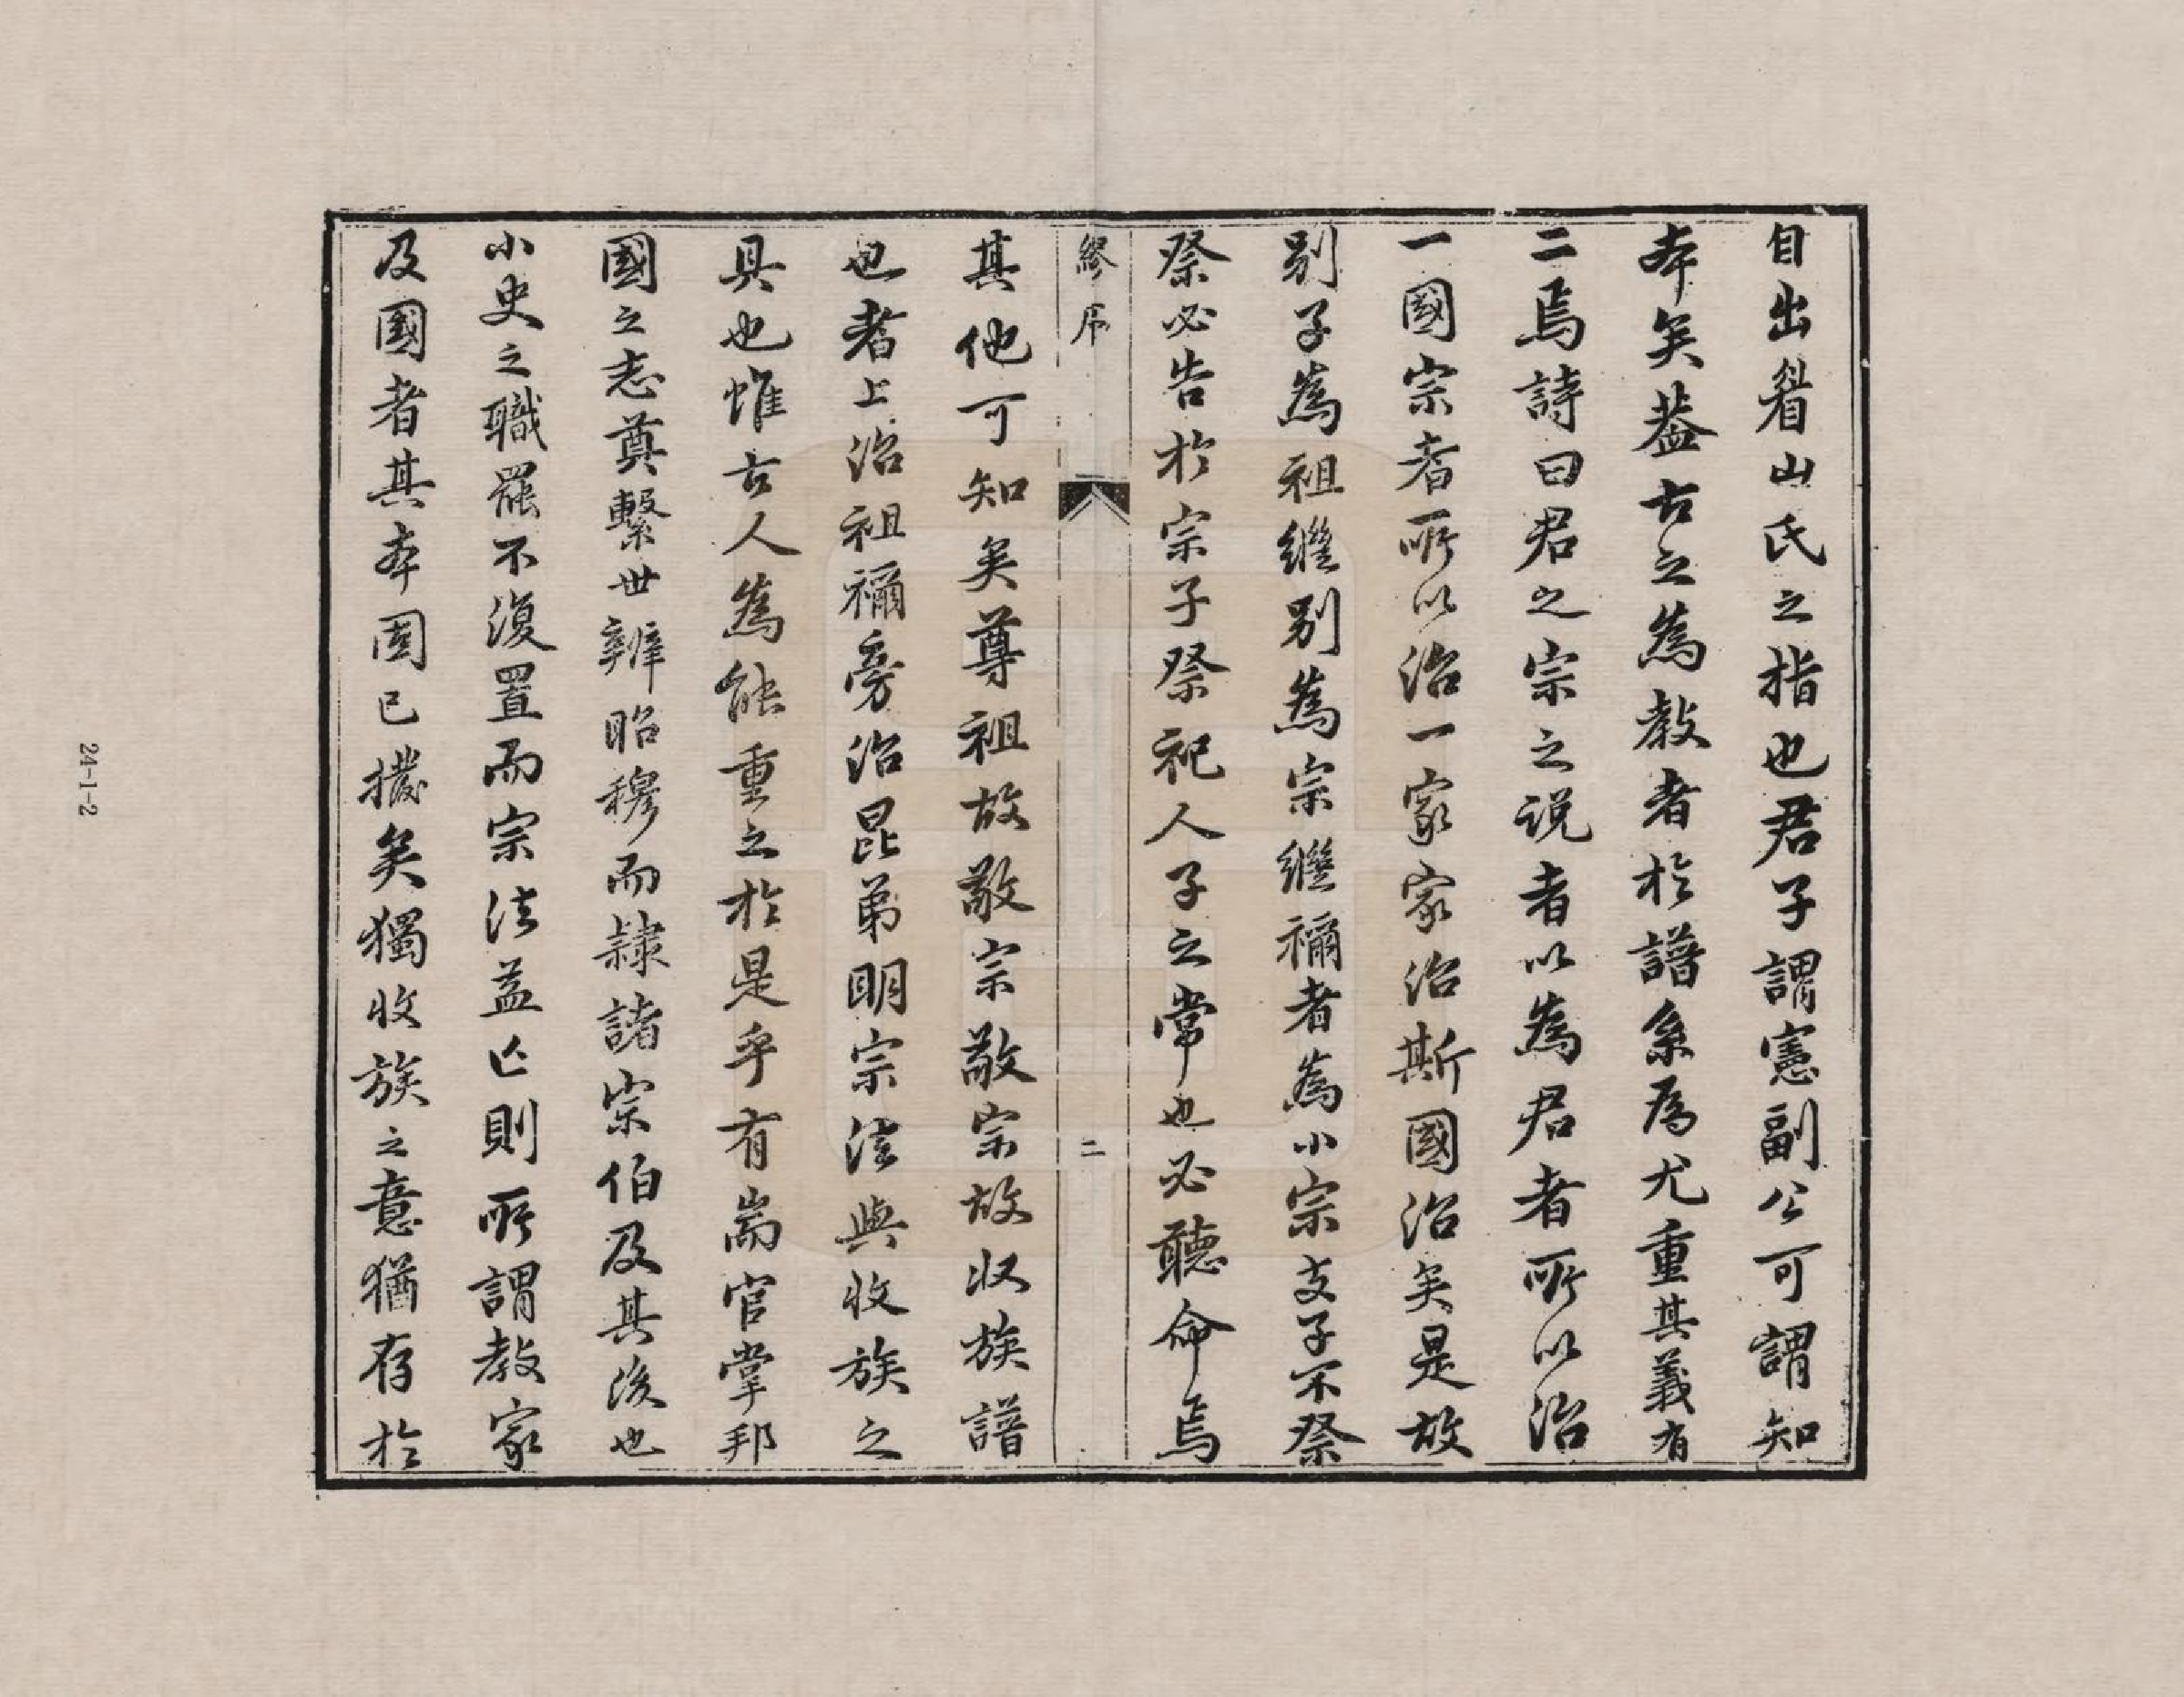 自出眷山氏之指也君子謂憲副公可謂知
本矣葢古之為教者於譜系為尤重其義有
二焉詩曰君之宗之説者以為君者所以治
一國宗者所以治一家家治斯國治矣是故
别子為祖繼别為宗繼禰者為小宗支子不祭
祭必告於宗子祭祀人子之常也必聽命焉
繆序
二
其他可知矣尊祖故敬宗敬宗故收族譜
也者上治祖禰旁治昆弟明宗法與收族之
具也惟古人為能重之於是乎有耑官掌邦
國之志奠繫世辨昭穆而隷諸宗伯及其後也
小史之職罷不復置而宗法益亡則所謂教家
及國者其本固已撥矣獨收族之意猶存於
24-1-2